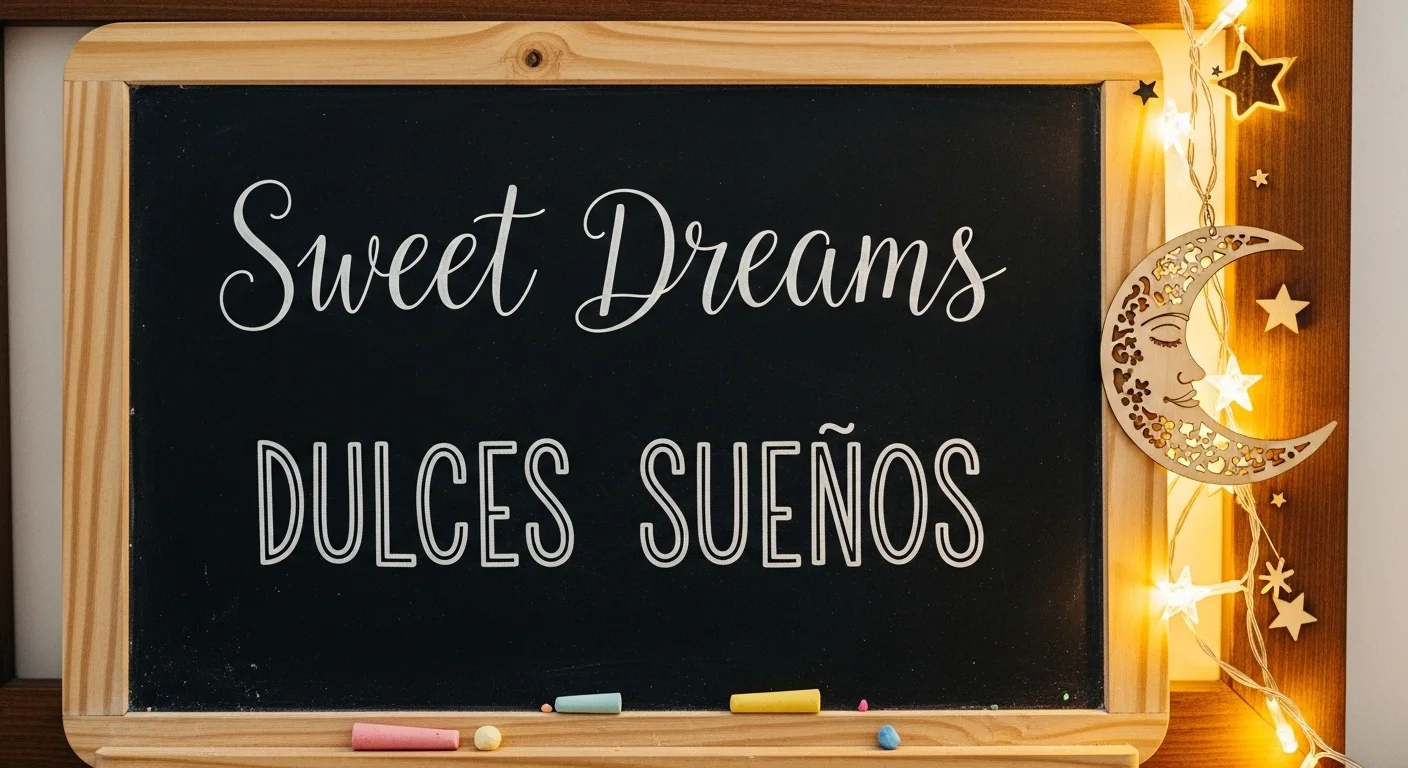 Sweet Dreams
DULCES SUEÑOS